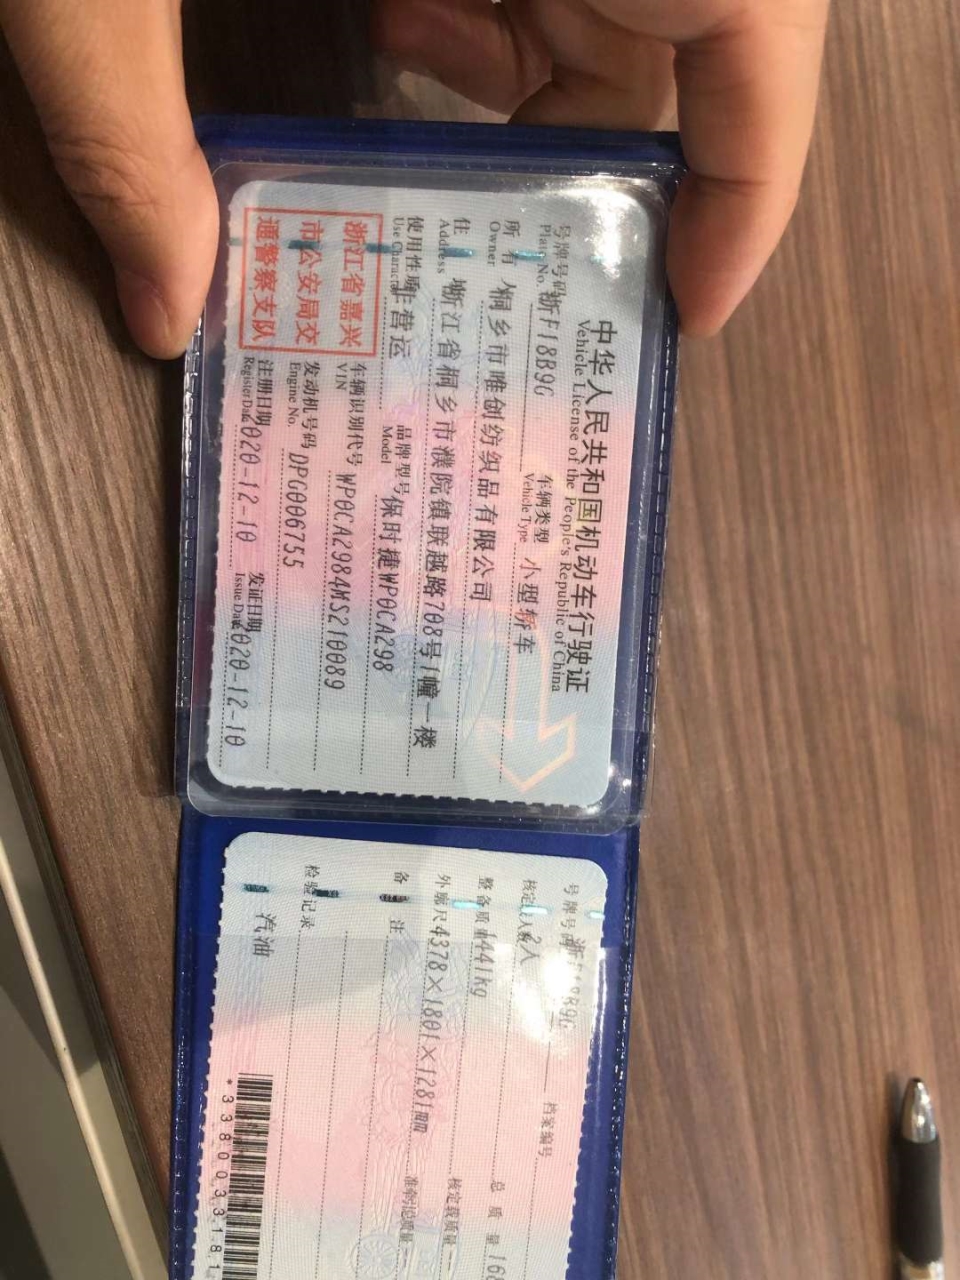 中华人民共和国机动车行驶证
Vehicle License of the People's Republic of China
号牌号码 浙F18B9G 车辆类型 小型轿车
Plate No. Vehicle Type
所有人 桐乡市唯创纺织品有限公司
Owner
住 址 浙江省桐乡市濮院镇联越路708号1幢一楼
Address
使用性质 非营运 品牌型号 保时捷WP0CA298
Use Character Model
浙江省嘉兴
市公安局交
通警察支队
车辆识别代号 WP0CA2984MS210089
VIN
发动机号码 DPG006755
Engine No.
注册日期 2020-12-10 发证日期 2020-12-10
Register Date Issue Date
号牌号码 档案编号
核定载人数 2人 总质量
整备质量 1441kg 核定载质量
外廓尺 4378×1801×1281mm 准牵引总质量
备 注
检验记录
汽油